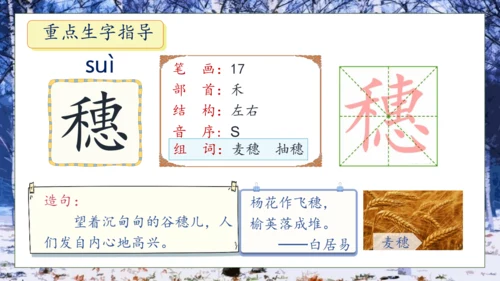 重点生字指导
suì
穗
笔 画：17
部 首：禾
结 构：左右
音 序：S
组 词：麦穗 抽穗
穗
造句：
望着沉甸甸的谷穗儿，人
们发自内心地高兴。
杨花作飞穗，
榆英落成堆。
——白居易
麦穗